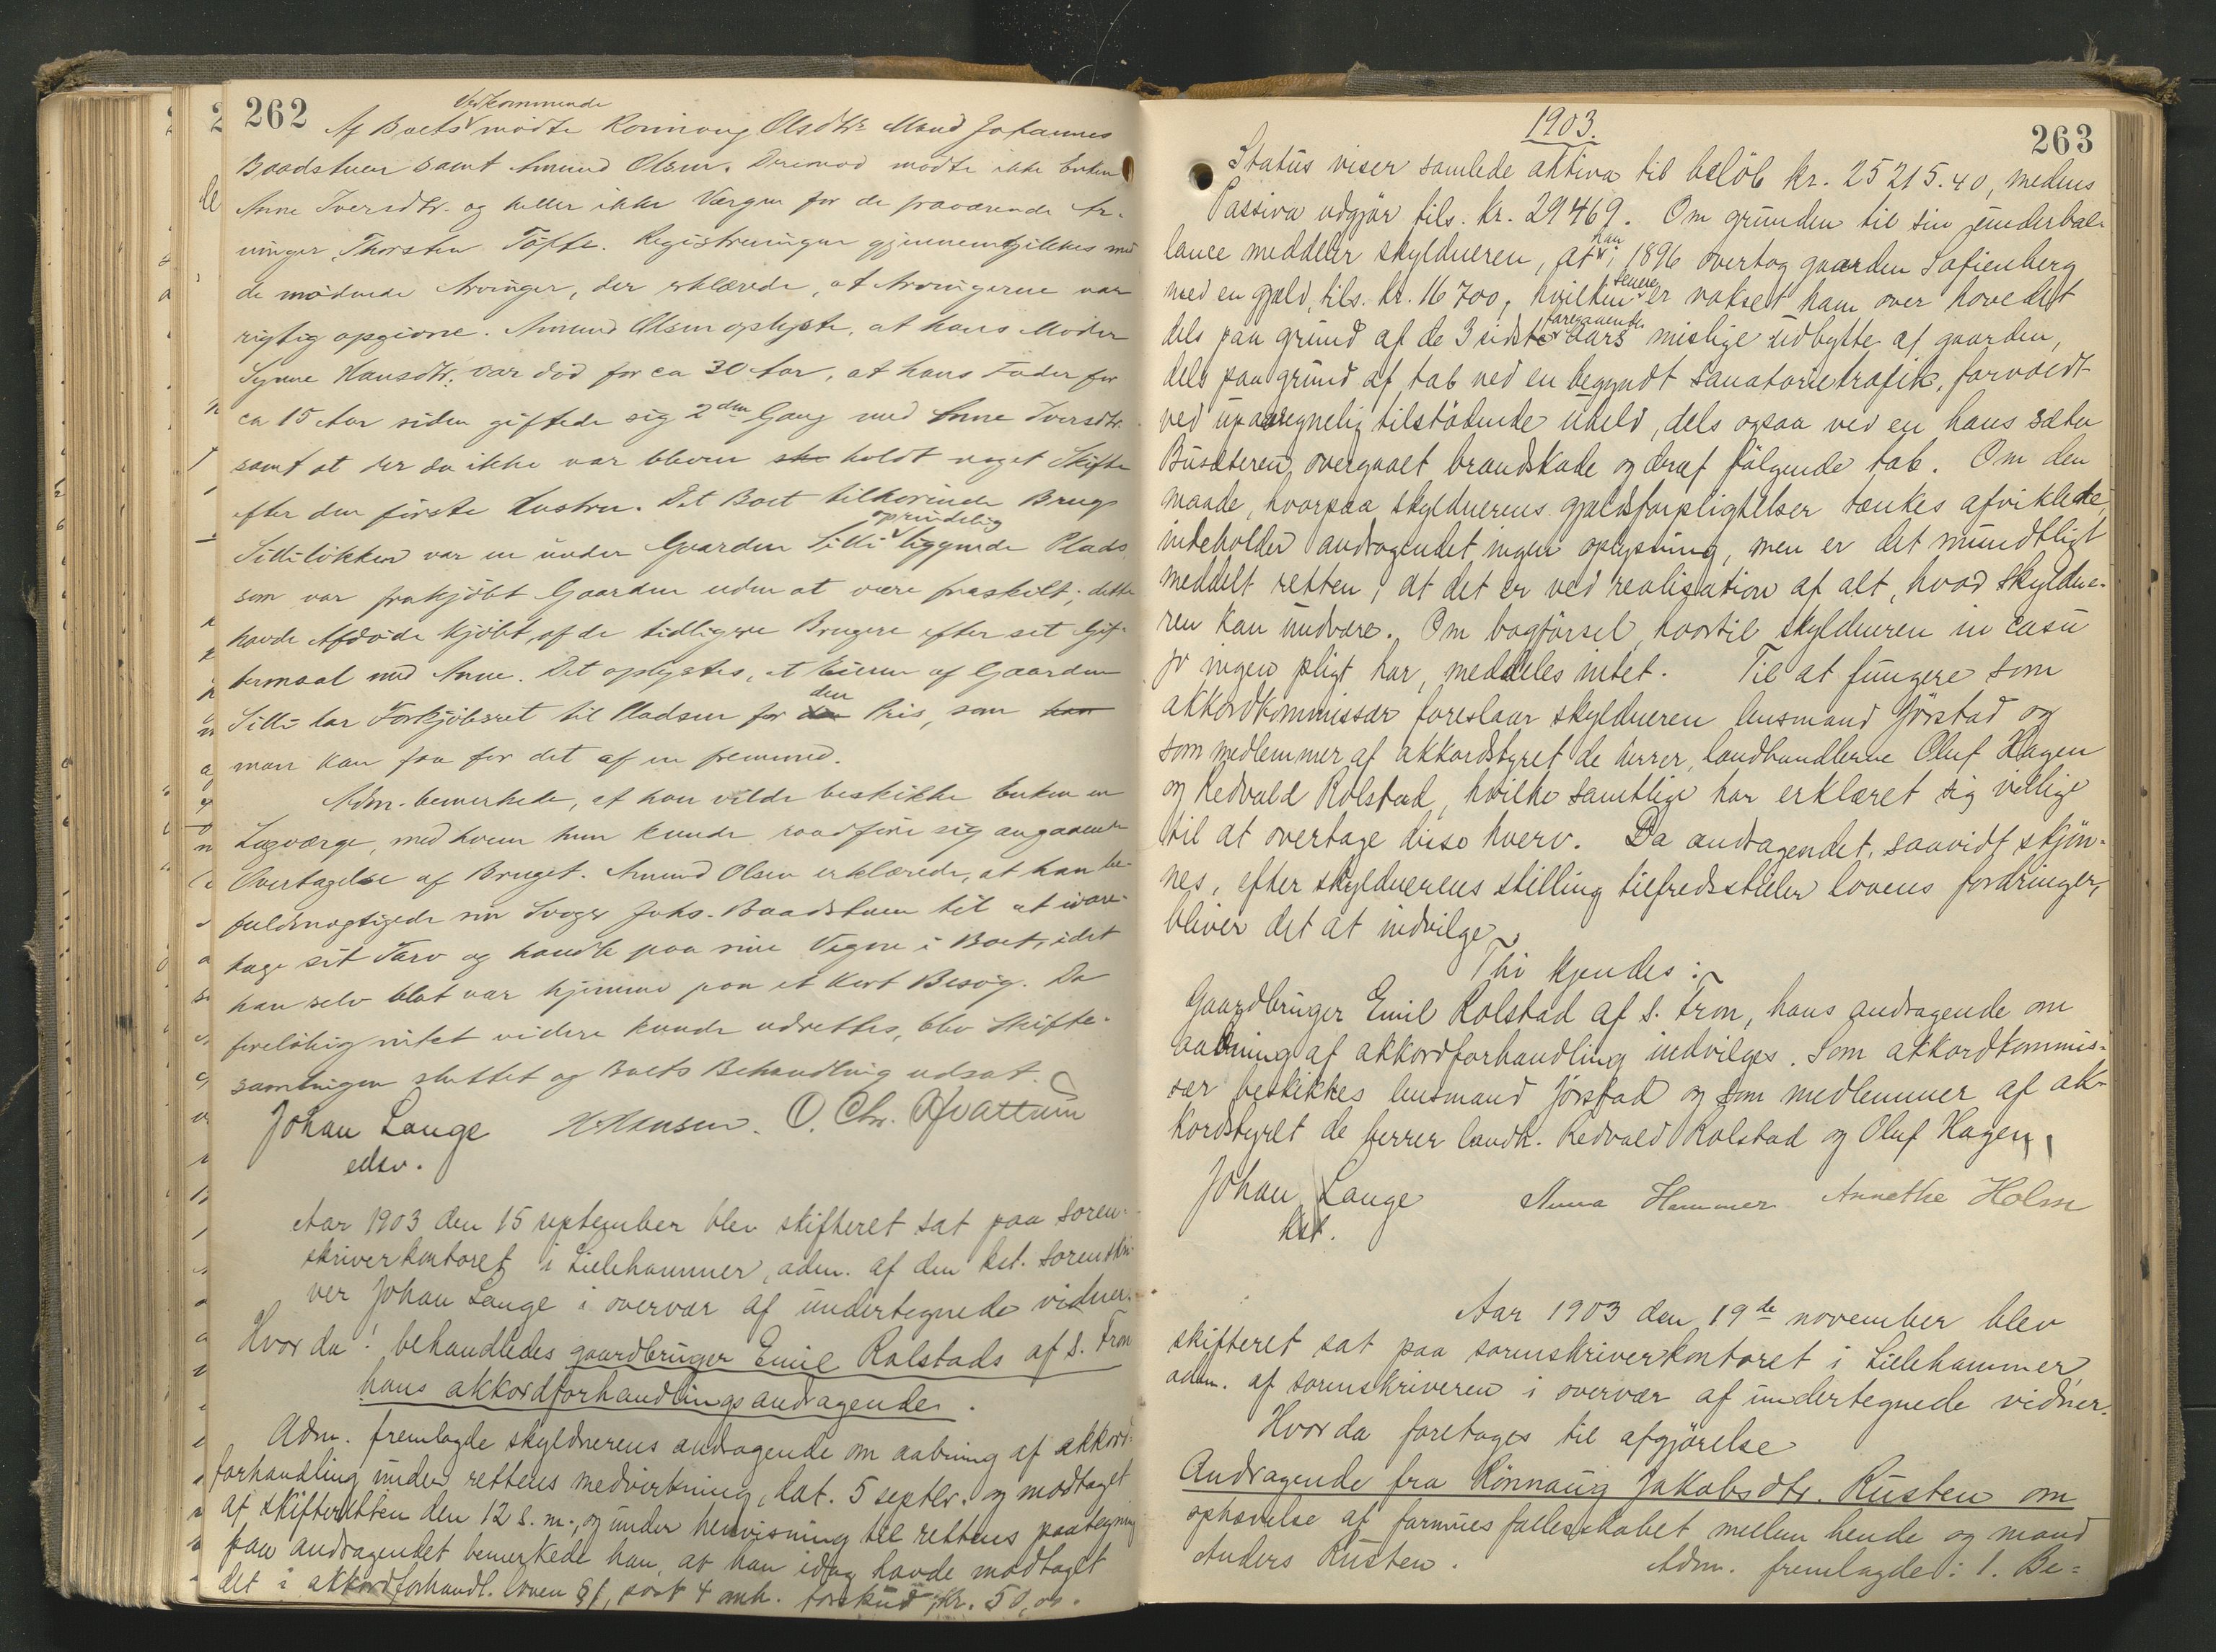 262
Vedkommende
Af Boets mødte Rønnaug Olsdtr. Mand Johannes
Baadstuen samt Amund Olsen. Derimod mødte ikke Enken
Anne Iversdtr. og heller ikke Værgen for de fraværende Ar-
vinger, Thorsten Tøfte. Registreringen gjennemgikkes med
de mødende Arvinger, der erklærede, at Arvingerne var
rigtig opgivne. Amund Olsen oplyste, at hans Moder
Synne Hansdtr. var død for ca 30 Aar, at hans Fader for
ca 15 Aar siden giftede sig 2den Gang med Anne Iversdtr.
samt at der da ikke var bleven ske holdt noget Skifte
efter den første Hustru. Det Boet tilhørende Brug
oprindelig
Silliløkken var en under Gaarden Silli liggende Plads
som var frakjøbt Gaarden uden at være fraskilt; dette
havde Afdøde kjøbt af de tidligere Brugere efter sit Gif-
termaal med Anne. Det oplystes, at Eieren af Gaarden
den
Silli har Forkjøbsret til Pladsen for den Pris, som han
man kan faa for det af en fremmed.
Adm. bemerkede, at han vilde beskikke Enken en
Lagværge, med hvem hun kunde raadføre sig angaaende
Overtagelse af Bruget. Amund Olsen erklærede, at han be-
fuldmægtigede sin Svoger Johs. Baadstuen til at ivare-
tage sit Tarv og handle paa sine Vegne i Boet, idet
han selv blot var hjemme paa et kort Besøg. Da
foreløbig intet videre kunde udrettes, blev Skifte-
samlingen sluttet og Boets Behandling udsat.
Johan Lange H. Hansen. O. Chr. Hvattum
edsv.
Aar 1903 den 15 september blev skifteret sat paa soren-
skriverkontoret i Lillehammer, adm. af den kst. sorenskri-
ver Johan Lange i overvær af undertegnede vidner.
Hvor da: behandledes gaardbruger Emil Rolstads af S. Fron
hans akkordforhandlingsandragende.
Adm. fremlagde skyldnerens andragende om aabning af akkord-
forhandling under rettens medvirkning, dat. 5 septbr. og modtaget
af skifteretten den 12 s. m., og under henvisning til rettens paategning
paa andragendet bemerkede han, at han idag havde modtaget
det i akkordforhandl. loven § 1, post 4 omh. forskud, kr. 50,00.
1903.
263
Status viser samlede aktiva til beløb kr. 25215.40, medens
Passiva udgjør tils. kr. 29469. Om grunden til sin underbal-
han
lance meddeler skyldneren, at i 1896 overtog gaarden Sofienberg
senere
med en gjæld, tils. kr. 16700, hvilken er vokset ham over hovedet
foregaaende
dels paa grund af de 3 sidste aars mislige udbytte af gaarden,
dels paa grund af tab ved en begyndt sanatorietrafik, forvoldt
ved upaaregnelig tilstødende uheld, dels ogsaa ved en hans sæter
Busæteren, overgaaet brandskade og deraf følgende tab. Om den
maade, hvorpaa skyldnerens gjældsforpligtelser tænkes afviklede,
indeholder andragendet ingen oplysning, men er det mundtligt
meddelt retten, at det er ved realisation af alt, hvad skyldne-
ren kan undvære. Om bogførsel, hvortil skyldneren in casu
jo ingen pligt har, meddeles intet. Til at fungere som
akkordkommissær foreslaar skyldneren lensmand Jørstad og
som medlemmer af akkordstyret de herrer, landhandlerne Oluf Hagen
og Redvald Rolstad, hvilke samtlige har erklæret sig villige
til at overtage disse hverv. Da andragendet, saavidt skjøn-
nes, efter skyldnerens stilling tilfredsstiller lovens fordringer,
bliver det at indvilge,
Thi kjendes:
Gaardbruger Emil Rolstad af S. Fron, hans andragende om
aabning af akkordforhandling indvilges. Som akkordkommis-
sær beskikkes lensmand Jørstad og som medlemmer af ak-
kordstyret de herrer landh. Redvald Rolstad og Oluf Hagen.
Johan Lange Anna Hammer Annethe Holm
kst.
Aar 1903 den 19de november blev
skifteret sat paa sorenskriverkontoret i Lillehammer,
adm. af sorenskriveren i overvær af undertegnede vidner.
Hvor da foretages til afgjørelse
Andragende fra Rønnaug Jakobsdtr. Rusten om
ophævelse af formuesfællesskabet mellem hende og mand
Anders Rusten. Adm. fremlagde: 1. Be=